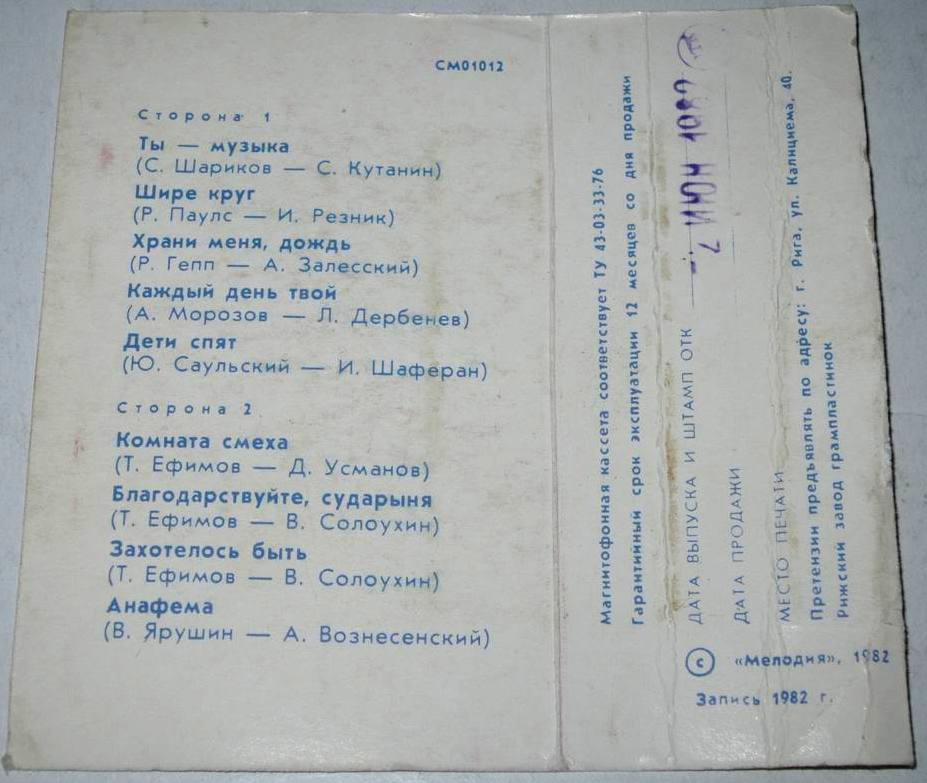 СМ01012
Сторона 1
Ты — музыка
(С. Шариков — С. Кутанин)
Шире круг
(Р. Паулс — И. Резник)
Храни меня, дождь
(Р. Гепп — А. Залесский)
Каждый день твой
(А. Морозов — Л. Дербенев)
Дети спят
(Ю. Саульский — И. Шаферан)
Сторона 2
Комната смеха
(Т. Ефимов — Д. Усманов)
Благодарствуйте, сударыня
(Т. Ефимов — В. Солоухин)
Захотелось быть
(Т. Ефимов — В. Солоухин)
Анафема
(В. Ярушин — А. Вознесенский)
Магнитофонная кассета соответствует ТУ 43-03-33-76
Гарантийный срок эксплуатации 12 месяцев со дня продажи
ДАТА ВЫПУСКА И ШТАМП ОТК
ИЮН 1982
ДАТА ПРОДАЖИ
МЕСТО ПЕЧАТИ
Претензии предъявлять по адресу: г. Рига, ул. Калнциема, 40.
Рижский завод грампластинок
© «Мелодия», 1982
Запись 1982 г.